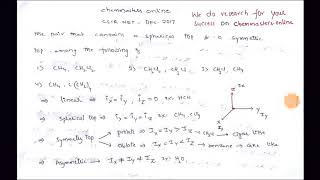 chemmasters online
CSIR NET - DEC 2017
We do research for your
success on chemmasters online
The pair that contains a spherical top & a symmetric
top, among the following is
1) CH4, CH2Cl2 2) CH2Cl2, CH3Cl 3) CH3Cl, CH4
4) CH4, C(CH3)4
⇒ linear ⇒ Ix = Iy, Iz = 0 ex: HCN
⇒ spherical top ⇒ Ix = Iy = Iz ex: CH4
⇒ symmetry top prolate ⇒ Ix = Iy > Iz → CH3Cl → cigar like
oblate ⇒ Ix = Iy < Iz → benzene → like
⇒ Asymmetric ⇒ Ix ≠ Iy ≠ Iz ex: H2O
Z
X
Y